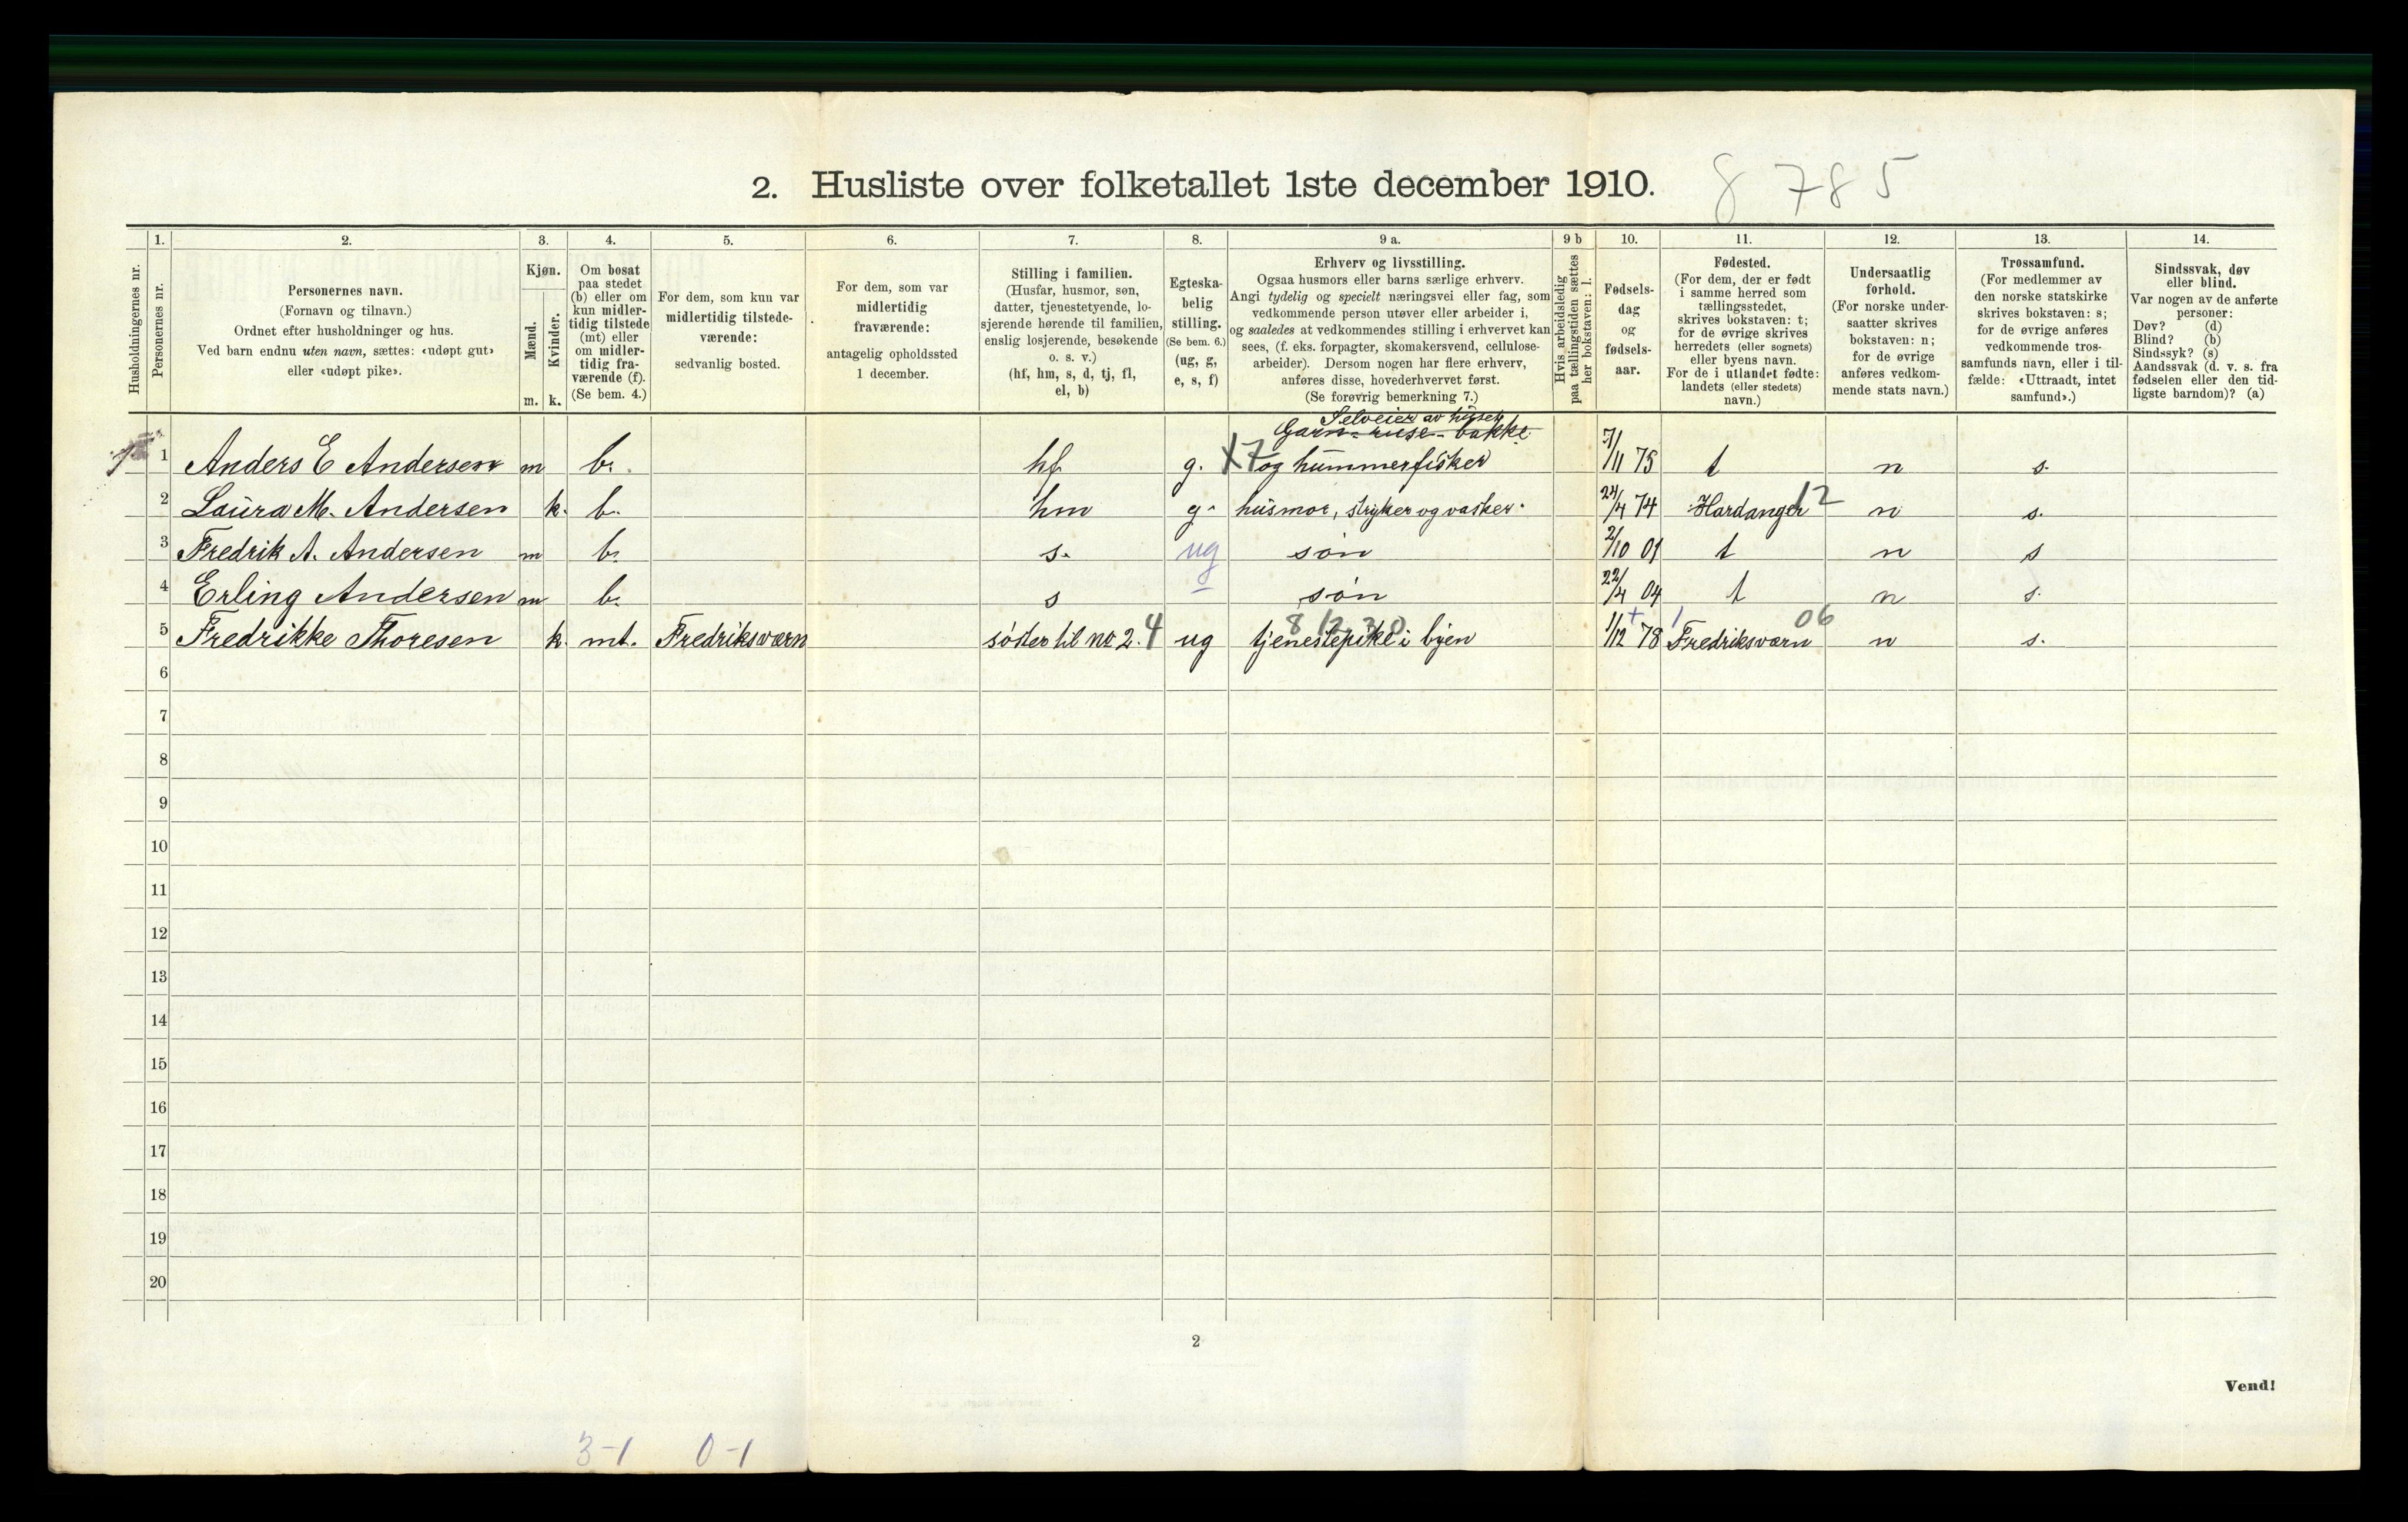 2. Husliste over folketallet 1ste december 1910. 8 785
1. 2. 3. 4. 5. 6. 7. 8. 9 a. 9 b 10. 11. 12. 13. 14.
Husholdningernes nr.
Personernes nr.
Personernes navn.
(Fornavn og tilnavn.)
Ordnet efter husholdninger og hus.
Ved barn endnu uten navn, sættes: «udøpt gut»
eller «udøpt pike».
Kjøn.
Mænd.
Kvinder.
m. k.
Om bosat
paa stedet
(b) eller om
kun midler-
tidig tilstede
(mt) eller
om midler-
tidig fra-
værende (f).
(Se bem. 4.)
For dem, som kun var
midlertidig tilstede-
værende:
sedvanlig bosted.
For dem, som var
midlertidig
fraværende:
antagelig opholdssted
1 december.
Stilling i familien.
(Husfar, husmor, søn,
datter, tjenestetyende, lo-
sjerende hørende til familien,
enslig losjerende, besøkende
o. s. v.)
(hf, hm, s, d, tj, fl,
el, b)
Egteska-
belig
stilling.
(Se bem. 6.)
(ug, g,
e, s, f)
Erhverv og livsstilling.
Ogsaa husmors eller barns særlige erhverv.
Angi tydelig og specielt næringsvei eller fag, som
vedkommende person utøver eller arbeider i,
og saaledes at vedkommendes stilling i erhvervet kan
sees, (f. eks. forpagter, skomakersvend, cellulose-
arbeider). Dersom nogen har flere erhverv,
anføres disse, hovederhvervet først.
(Se forøvrig bemerkning 7.)
Hvis arbeidsledig
paa tællingstiden sættes
her bokstaven: l.
Fødsels-
dag
og
fødsels-
aar.
Fødested.
(For dem, der er født
i samme herred som
tællingsstedet,
skrives bokstaven: t;
for de øvrige skrives
herredets (eller sognets)
eller byens navn.
For de i utlandet fødte:
landets (eller stedets)
navn.)
Undersaatlig
forhold.
(For norske under-
saatter skrives
bokstaven: n;
for de øvrige
anføres vedkom-
mende stats navn.)
Trossamfund.
(For medlemmer av
den norske statskirke
skrives bokstaven: s;
for de øvrige anføres
vedkommende tros-
samfunds navn, eller i til-
fælde: «Uttraadt, intet
samfund».)
Sindssvak, døv
eller blind.
Var nogen av de anførte
personer:
Døv? (d)
Blind? (b)
Sindssyk? (s)
Aandssvak (d. v. s. fra
fødselen eller den tid-
ligste barndom)? (a)
Selveier av huset
Garn- ruse- bakke
1 Anders E Andersen m b. hf g. X7 og hummerfisker 7/11 75 t n s.
2 Laura M. Andersen k. b. hm g. husmor, stryker og vasker. 24/4 74 Hardanger 12 n s.
3 Fredrik A. Andersen m b. s. ug søn 2/10 01 t n s
4 Erling Andersen m b. s søn 22/4 04 t n s.
5 Fredrikke Thoresen k. mt. Fredriksværn søster til no 2. 4 ug tjenestepike i byen 1/12 78 Fredriksværn 06 n s.
6
7
8
9
10
11
12
13
14
15
16
17
18
19
20
2
Vend!
3-1 0-1